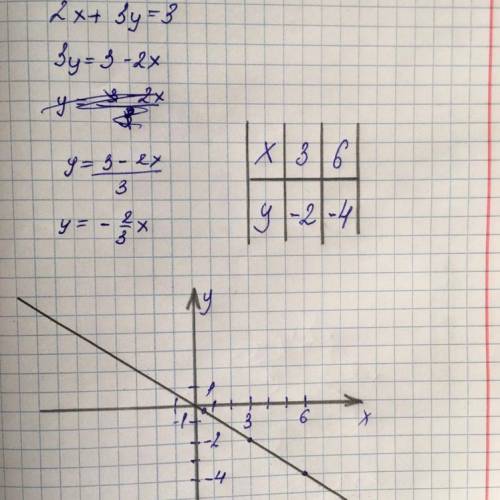 2x + 3y = 3
3y = 3 - 2x
y = 3 - 2x / 3
y = 3 - 2x / 3
y = - 2/3 x
x 3 6
y -2 -4
y
1
-1 3 6 x
-2
-4